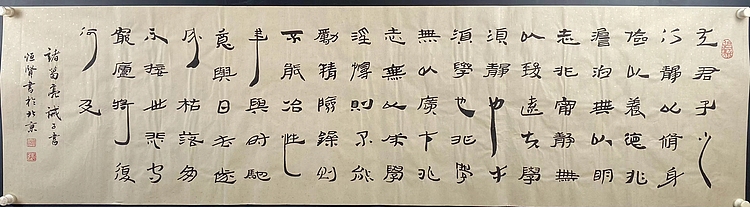 夫君子之
行靜以脩身
儉以養德非
澹泊無以明
志非甯靜無
以致遠夫學
須靜也才
須學也非學
無以廣才非
志無以成學
淫慢則不能
勵精險躁則
不能冶性
年與時馳
意與日去遂
成枯落多
不接世悲守
窮廬將復
何及
諸葛亮誡子書
恒賢書於北京